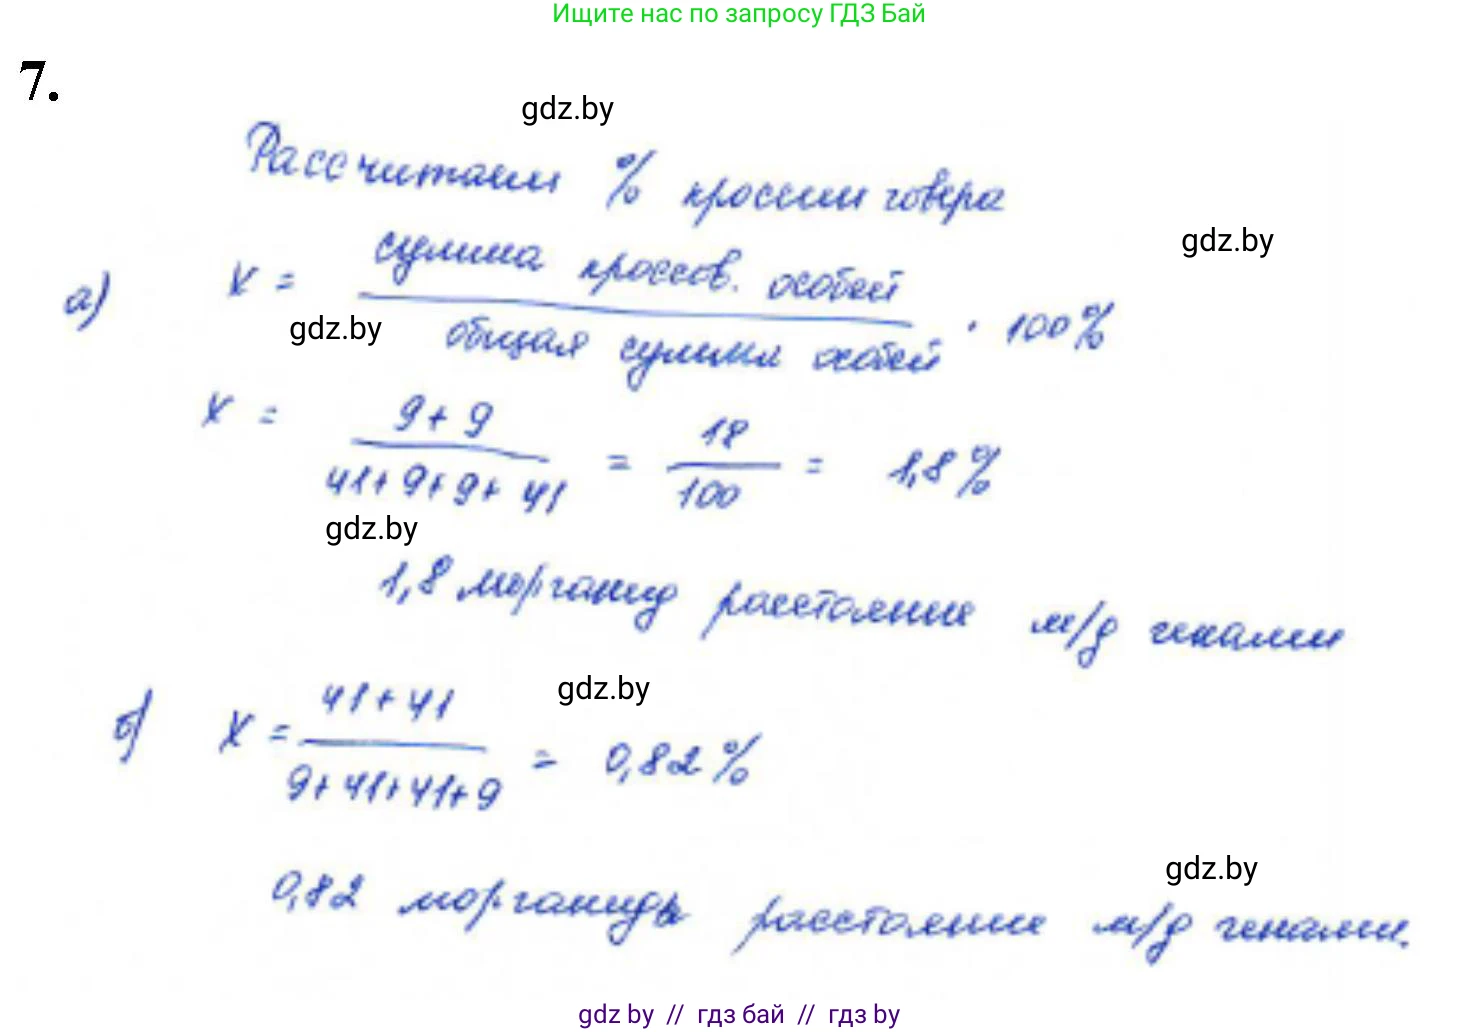 Ищите нас по запросу ГДЗ Бай
7.
gdz.by
Рассчитаем % кроссинговера
gdz.by
а) x = сумма кроссов. особей / общая сумма особей · 100%
gdz.by
x = 9+9 / 41+9+9+41 = 18 / 100 = 1,8%
gdz.by
1,8 морганид расстояние м/д генами
gdz.by
б) x = 41+41 / 9+41+41+9 = 0,82%
gdz.by
0,82 морганиды расстояние м/д генами.
gdz by // гдз бай // гдз by